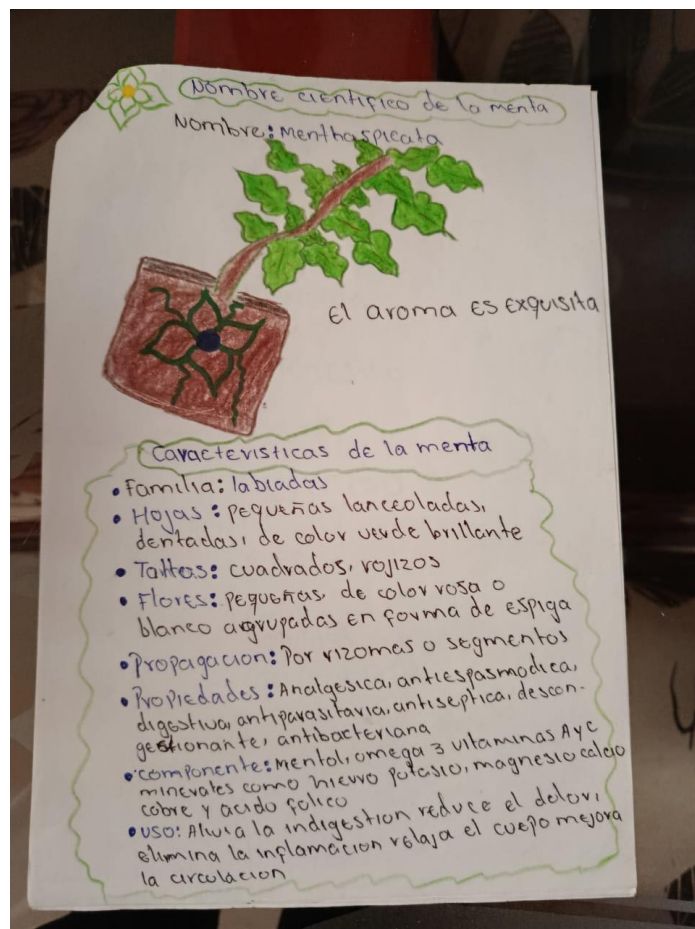 Nombre cientifico de la menta
Nombre: Mentha spicata
El aroma es exquisita
Caracteristicas de la menta
• Familia: labiadas
• Hojas: pequeñas lanceoladas,
dentadas, de color verde brillante
• Tallos: cuadrados, rojizos
• Flores: pequeñas, de color rosa o
blanco agrupadas en forma de espiga
• Propagacion: Por rizomas o segmentos
• Propiedades: Analgesica, antiespasmodica,
digestiva, antiparasitaria, antiseptica, descon-
gestionante, antibacteriana
• componente: Mentol, omega 3 vitaminas A y C
minerales como hierro potasio, magnesio calcio
cobre y acido folico
• uso: Alivia la indigestion reduce el dolor,
elimina la inflamacion relaja el cuepo mejora
la circulacion